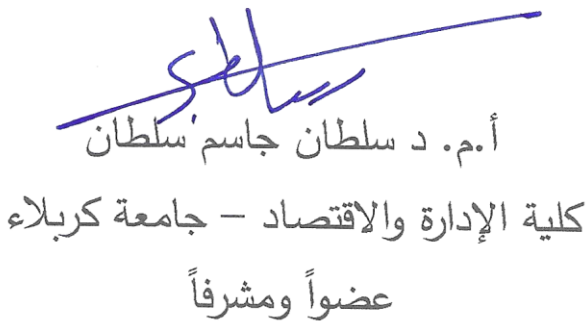 أ.م. د سلطان جاسم سلطان
كلية الإدارة والاقتصاد – جامعة كربلاء
عضواً ومشرفاً